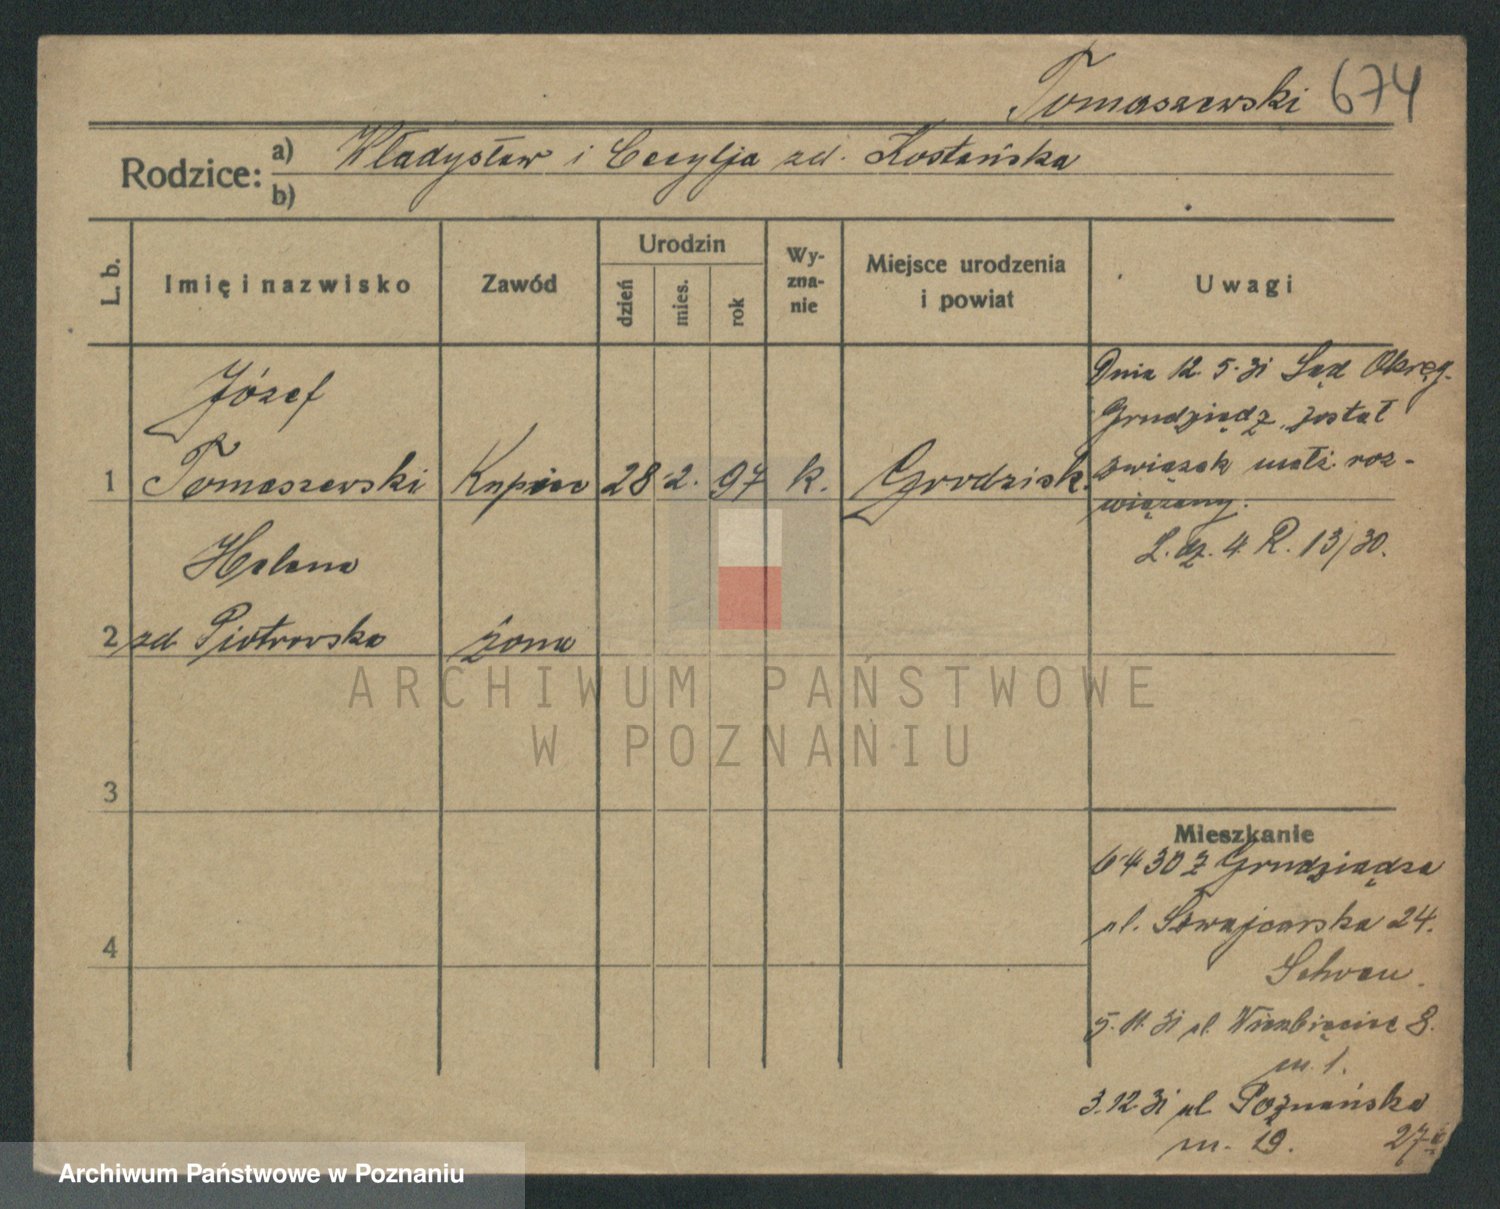 Tomaszewski 674
Rodzice: a) Władysław i Cecylja zd. Kostańska
b)
L. b. Imię i nazwisko Zawód Urodzin dzień mies. rok Wy-zna-nie Miejsce urodzenia i powiat Uwagi
Józef
1 Tomaszewski Kupiec 28 2. 97 k. Grodzisk.
Dnia 12. 5. 31 Sąd Okręg.
Grudziądz, został
związek małż. roz-
wiązany.
L. dz. 4 R. 13/30.
Helena
2 zd Piotrowska żona
3
4
Mieszkanie
6 4 30 z Grudziądza
ul. Szwajcarska 24.
5. 11. 31 ul. Wierzbięcice 8.
m. 1.
3. 12 31 ul. Poznańska
m. 19. 27
ARCHIWUM PAŃSTWOWE
W POZNANIU
Archiwum Państwowe w Poznaniu